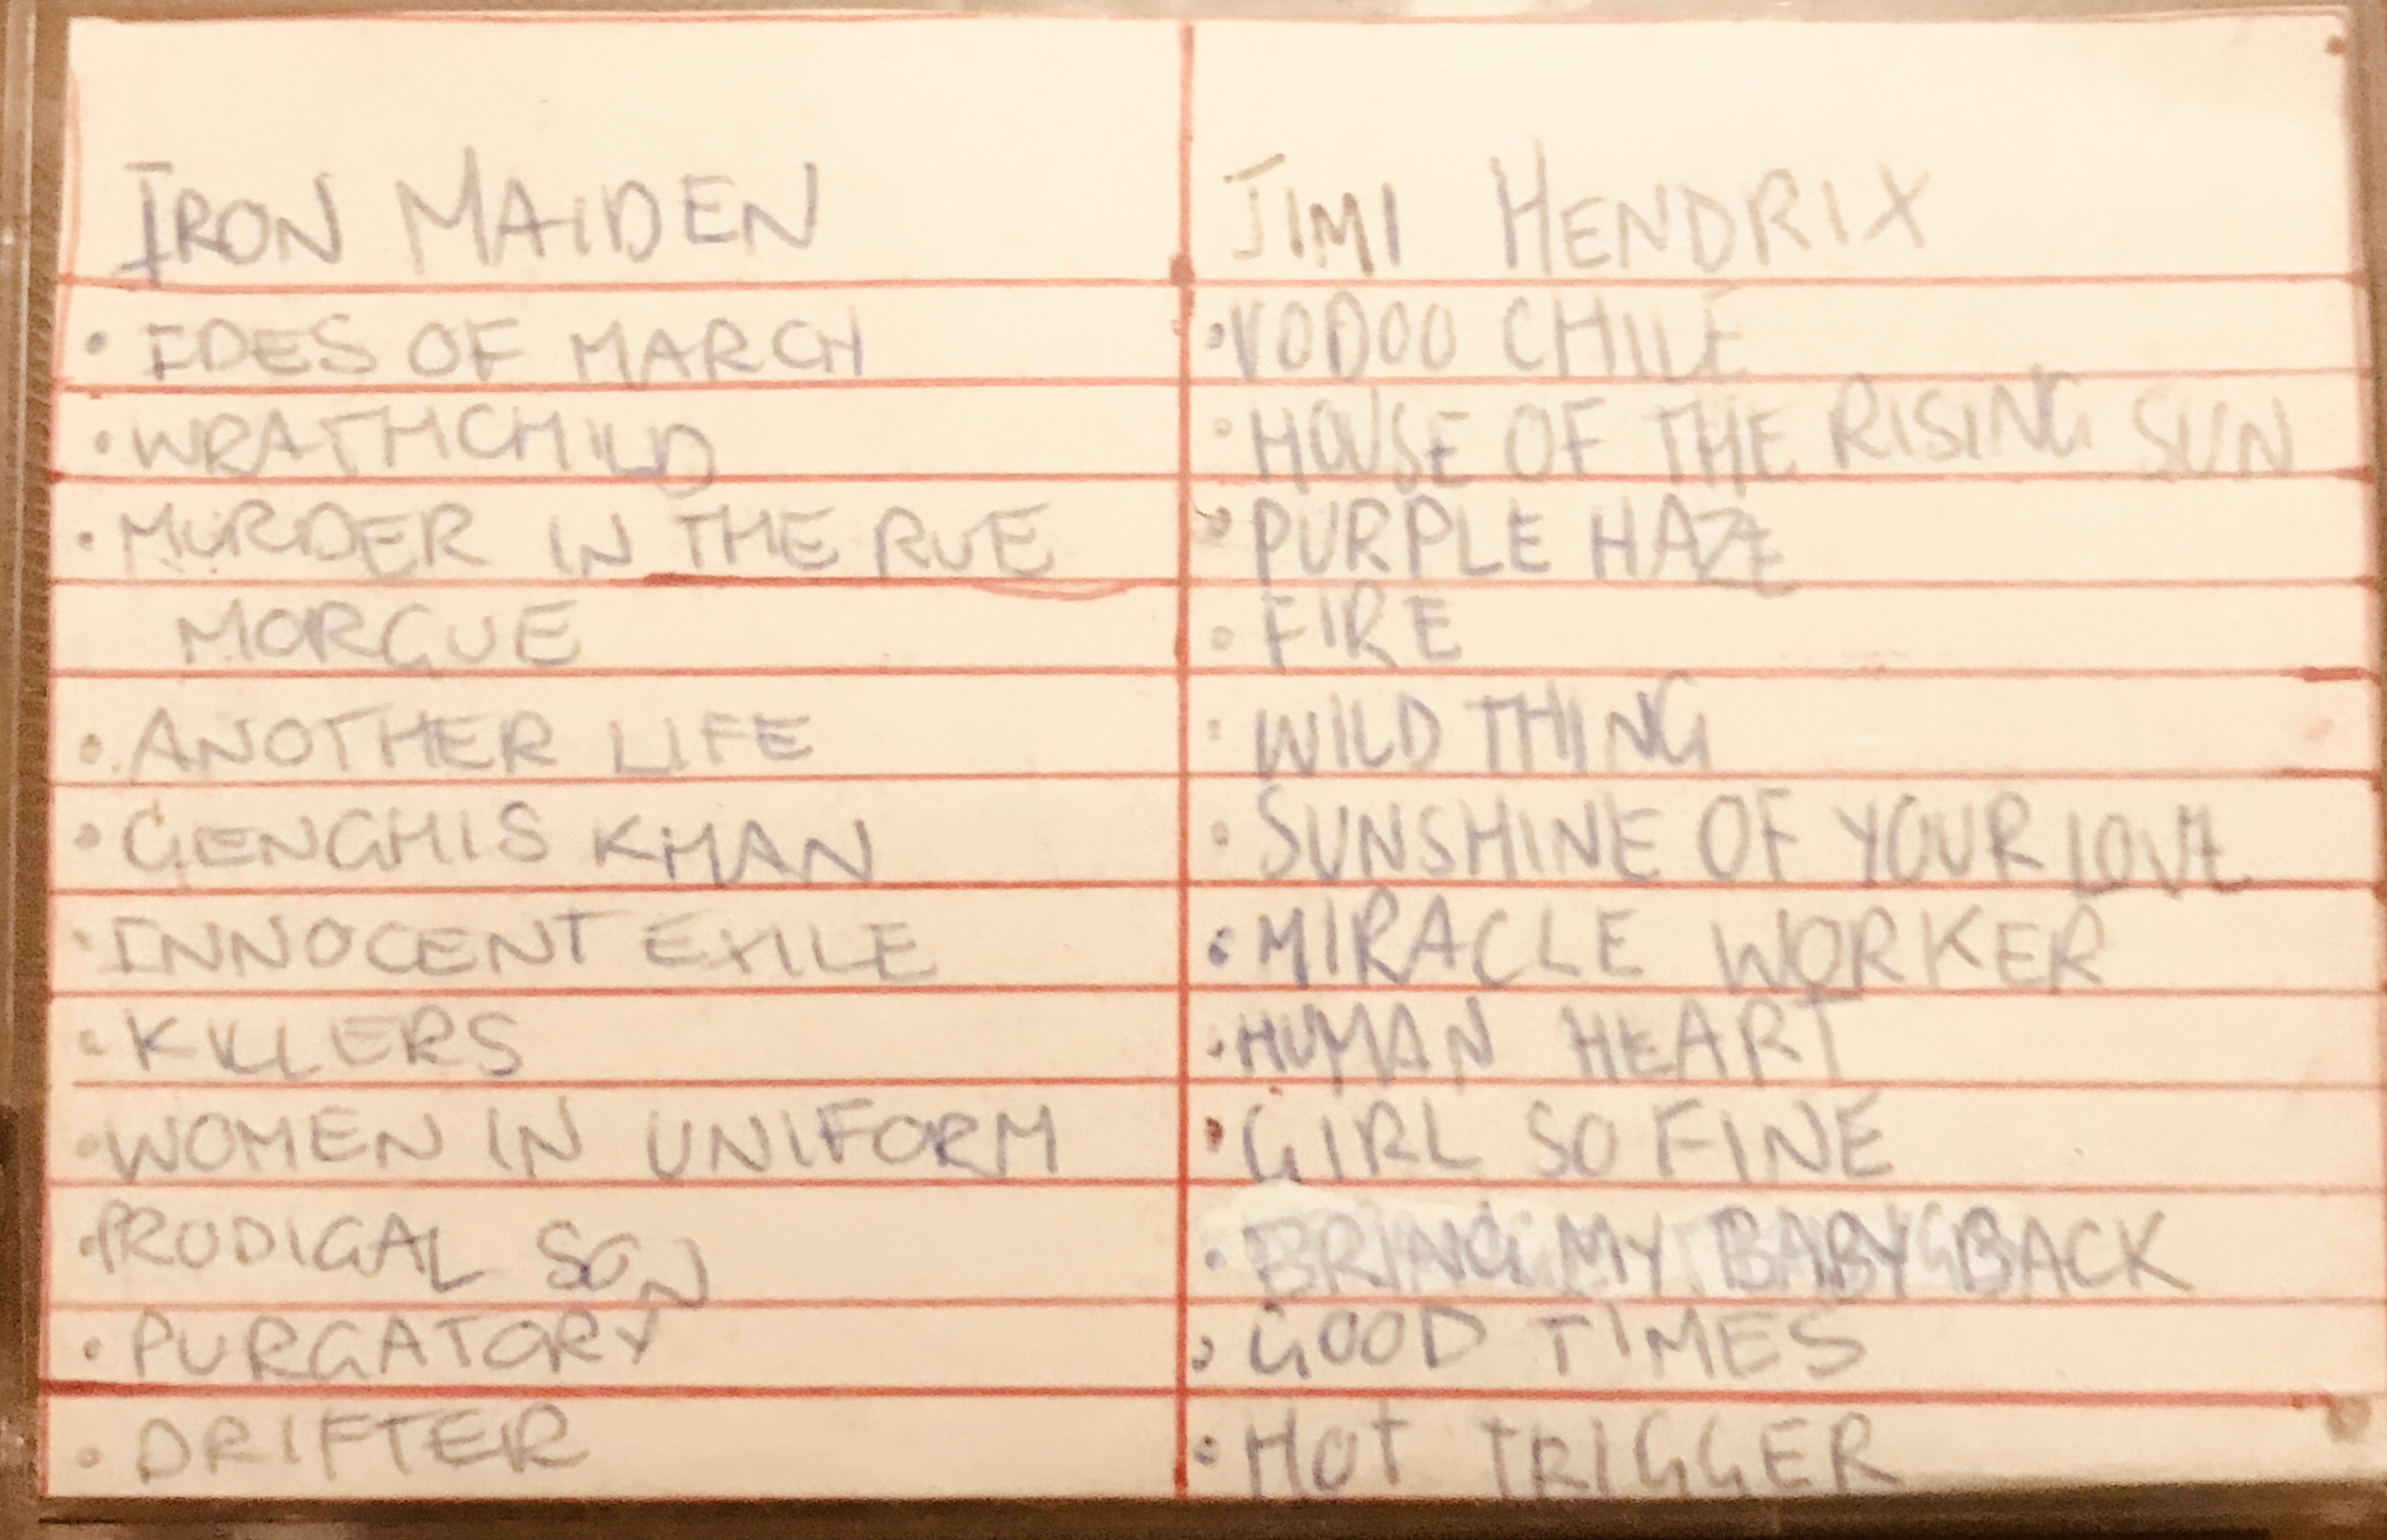 IRON MAIDEN
• IDES OF MARCH
• WRATHCHILD
• MURDER IN THE RUE
MORGUE
• ANOTHER LIFE
• GENGHIS KHAN
• INNOCENT EXILE
• KILLERS
• WOMEN IN UNIFORM
• PRODIGAL SON
• PURGATORY
• DRIFTER
JIMI HENDRIX
• VODOO CHILE
• HOUSE OF THE RISING SUN
• PURPLE HAZE
• FIRE
• WILD THING
• SUNSHINE OF YOUR LOVE
• MIRACLE WORKER
• HUMAN HEART
• GIRL SO FINE
• BRING MY BABY BACK
• GOOD TIMES
• HOT TRIGGER